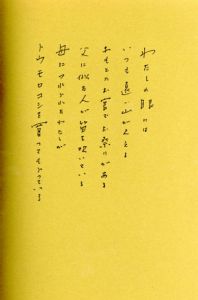 わたしの眼には
いつも遠い山が見える
おもとのお宮でお祭りがある
父に似た人が笛を吹いている
母につれられたわたしが
トウモロコシを買ってもらっている